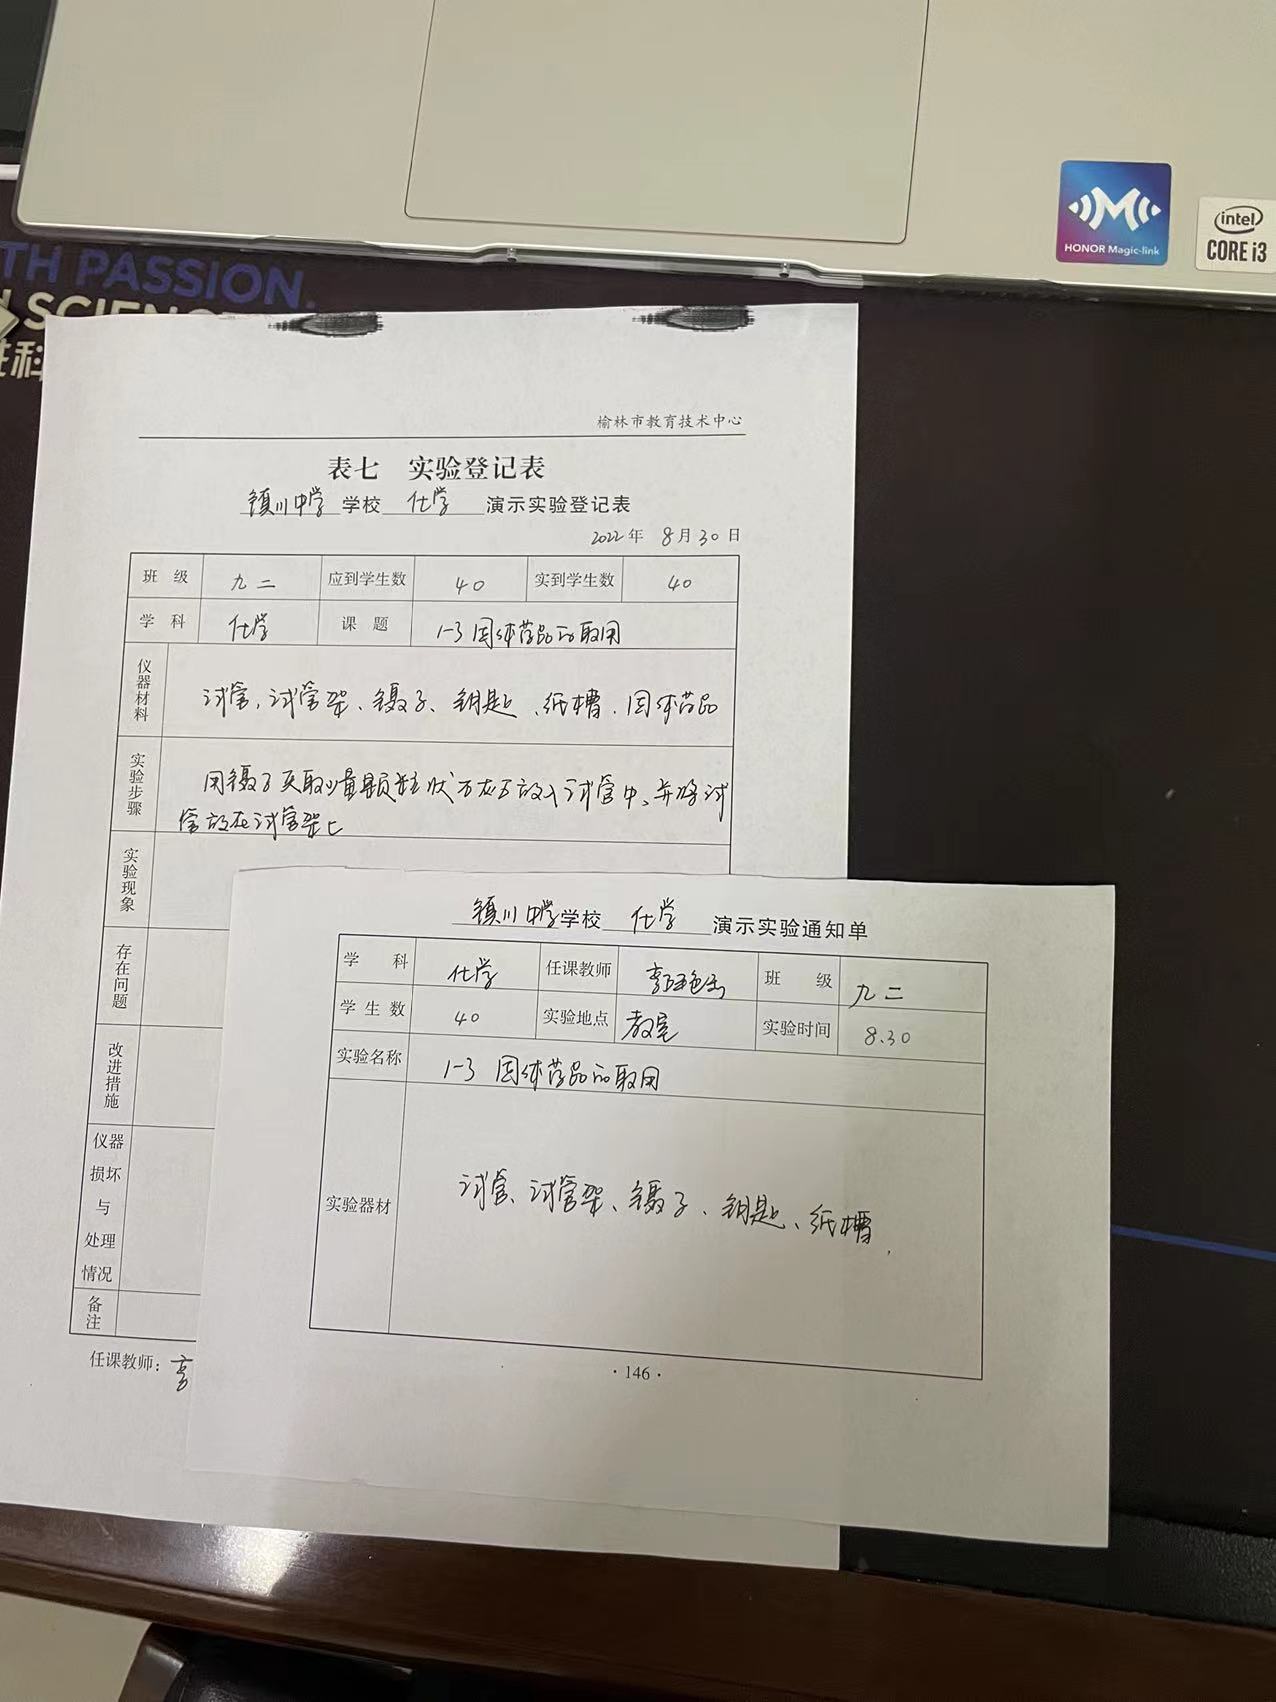 HONOR Magic-link
intel
CORE i3
TH PASSION.
SCIEN
榆林市教育技术中心
表七 实验登记表
镇川中学 学校 化学 演示实验登记表
2022年 8月30日
班 级 九二 应到学生数 40 实到学生数 40
学 科 化学 课 题 1-3 固体药品的取用
仪器材料 试管,试管架、镊子、钥匙、纸槽.固体药品
实验步骤 用镊子夹取少量颗粒状 放入试管中、并将试
管放在试管架上
实验现象
存在问题
改进措施
仪器
损坏
与
处理
情况
备注
任课教师: 李
镇川中学学校 化学 演示实验通知单
学 科 化学 任课教师 李 班 级 九二
学生数 40 实验地点 教室 实验时间 8.30
实验名称 1-3 固体药品的取用
实验器材 试管、试管架、镊子、钥匙、纸槽.
·146·